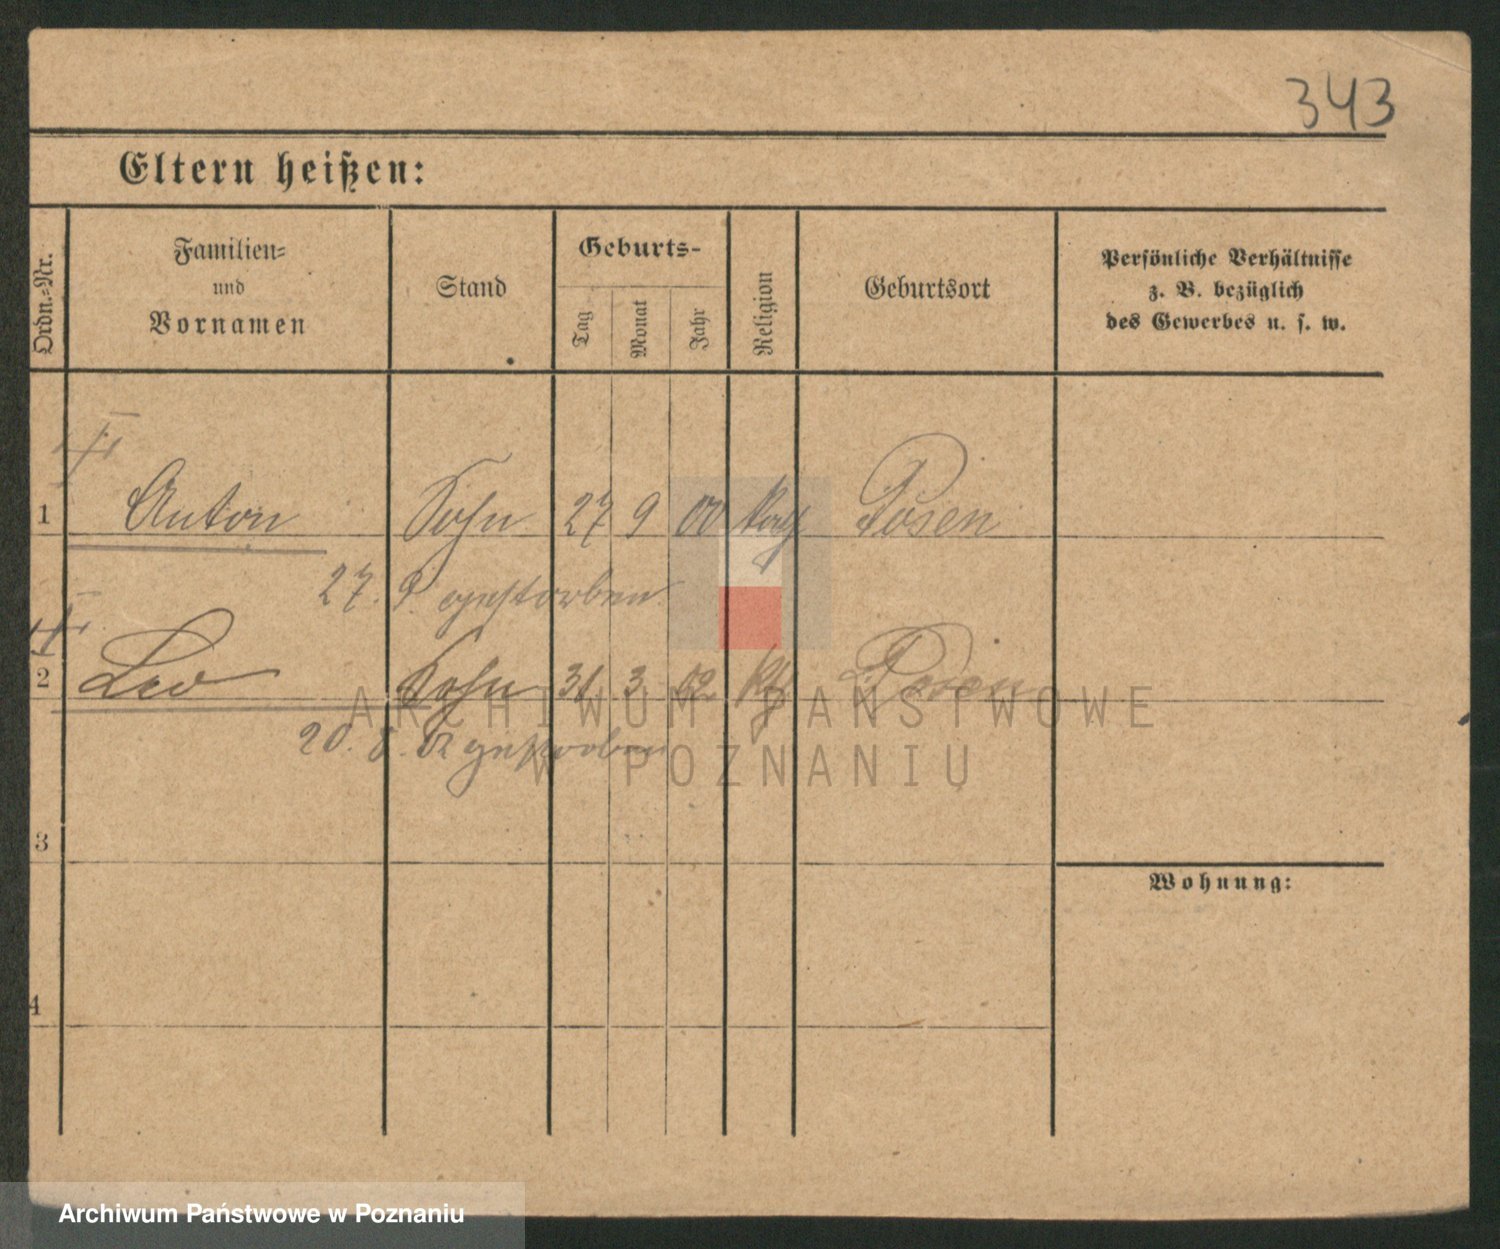 343
Eltern heißen:
Ordn.=Nr.
Familien=
und
Vornamen
Stand
Geburts-
Tag
Monat
Jahr
Religion
Geburtsort
Persönliche Verhältnisse
z. B. bezüglich
des Gewerbes u. s. w.
1 Anton Sohn 27 9 00 kath Posen
27. 9. gestorben
2 Leo Sohn 31 3 02 kth Posen
20. 8. 02 gestorben
3
Wohnung:
4
ARCHIWUM PAŃSTWOWE
W POZNANIU
Archiwum Państwowe w Poznaniu